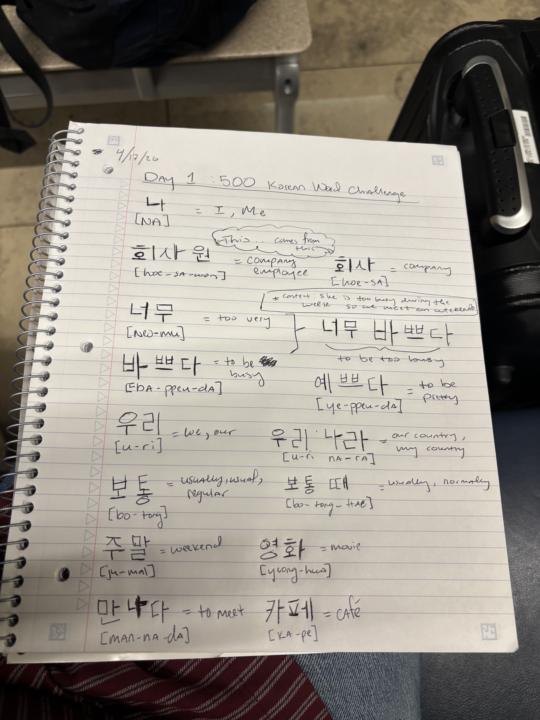 4/17/26
DAY 1 : 500 Korean Word Challenge
나 = I, Me
[NA]
This... comes from this
회사원 = company employee 회사 = company
[hoe-sa-won] [hoe-SA]
* context she is too busy during the week so we meet on weekends
너무 = too very 너무 바쁘다
[Neo-mu] to be too busy
바쁘다 = to be busy 예쁘다 = to be pretty
[BA-ppeu-da] [ye-ppeu-da]
우리 = we, our 우리 나라 = our country, my country
[u-ri] [u-ri NA-RA]
보통 = usually, usual, regular 보통 때 = usually, normally
[bo-tong] [bo-tong-ttae]
주말 = weekend 영화 = movie
[ju-mal] [yeong-hwa]
만나다 = to meet 카페 = café
[MAN-NA-dA] [KA-pe]